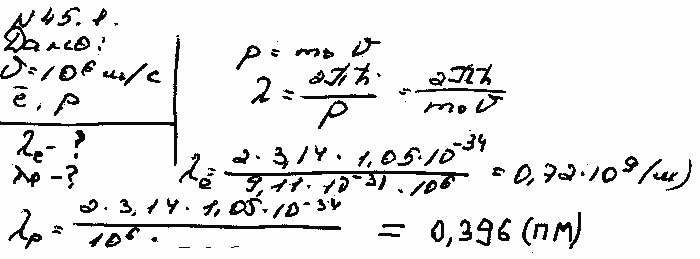 N 45.1.
Дано:
υ=10⁶ м/с
ē, p
λe - ?
λp - ?
p = m₀ υ
λ = 2πħ / p = 2πħ / m₀υ
λē = 2·3,14·1,05·10⁻³⁴ / 9,11·10⁻³¹·10⁶ = 0,72·10⁹ (м)
λp = 2·3,14·1,05·10⁻³⁴ / 10⁶· _ _ _ = 0,396 (пм)